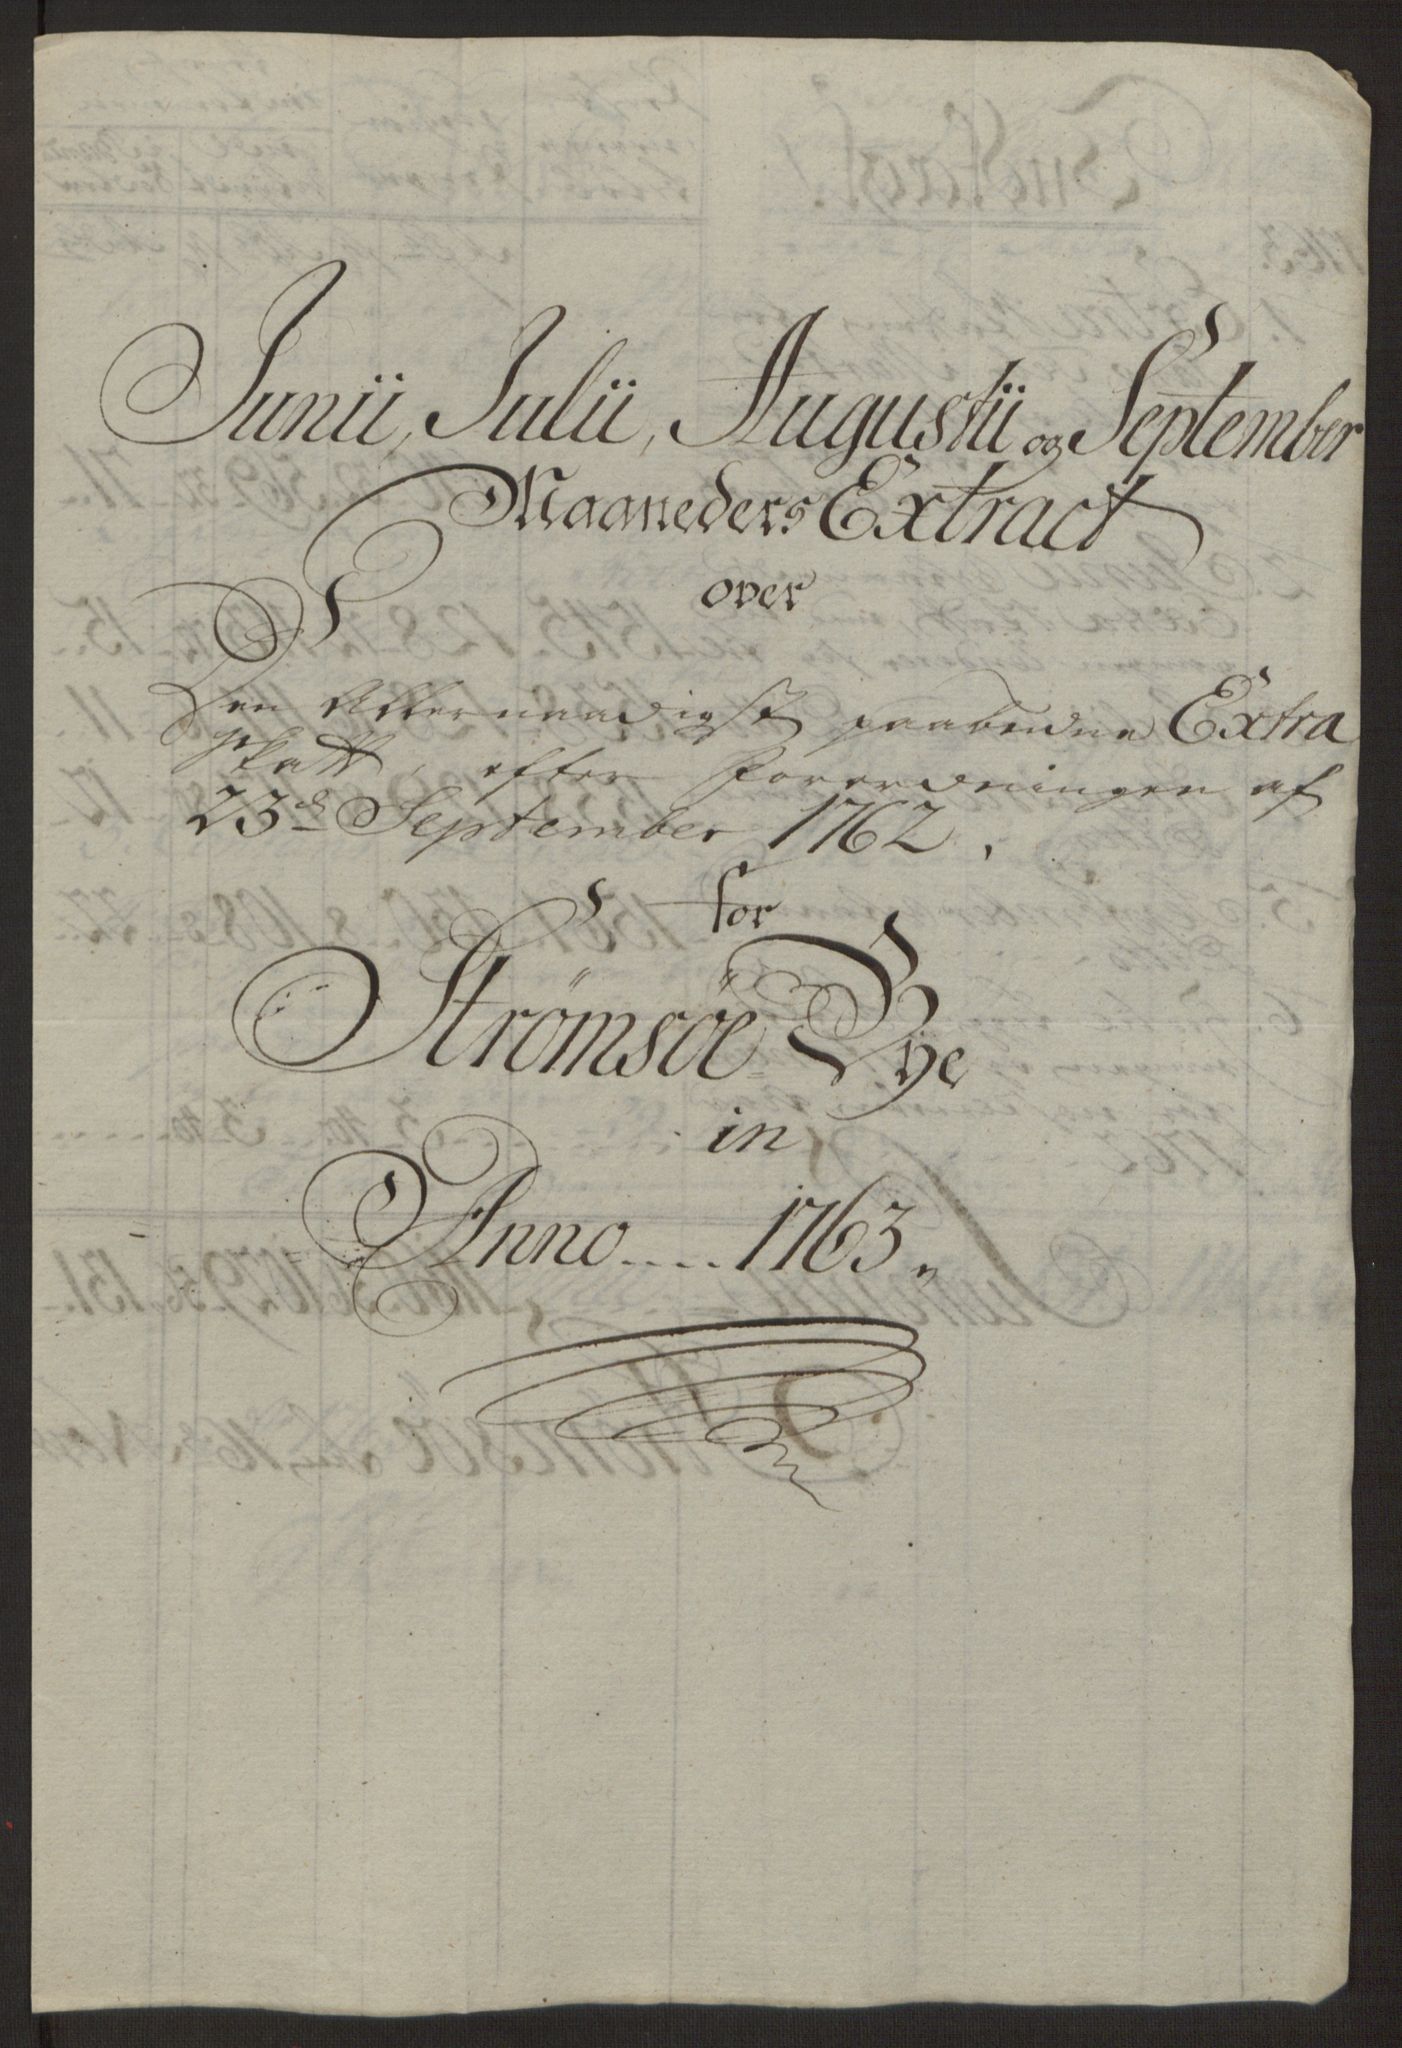 Junii, Julii, Augustii og September
Maaneders Extract
over
Den Allernaadigst paabudne Extra
Skatt, efter Forordningen af
23de September 1762.
for
Strømsöe Bye
in
Anno .... 1763.